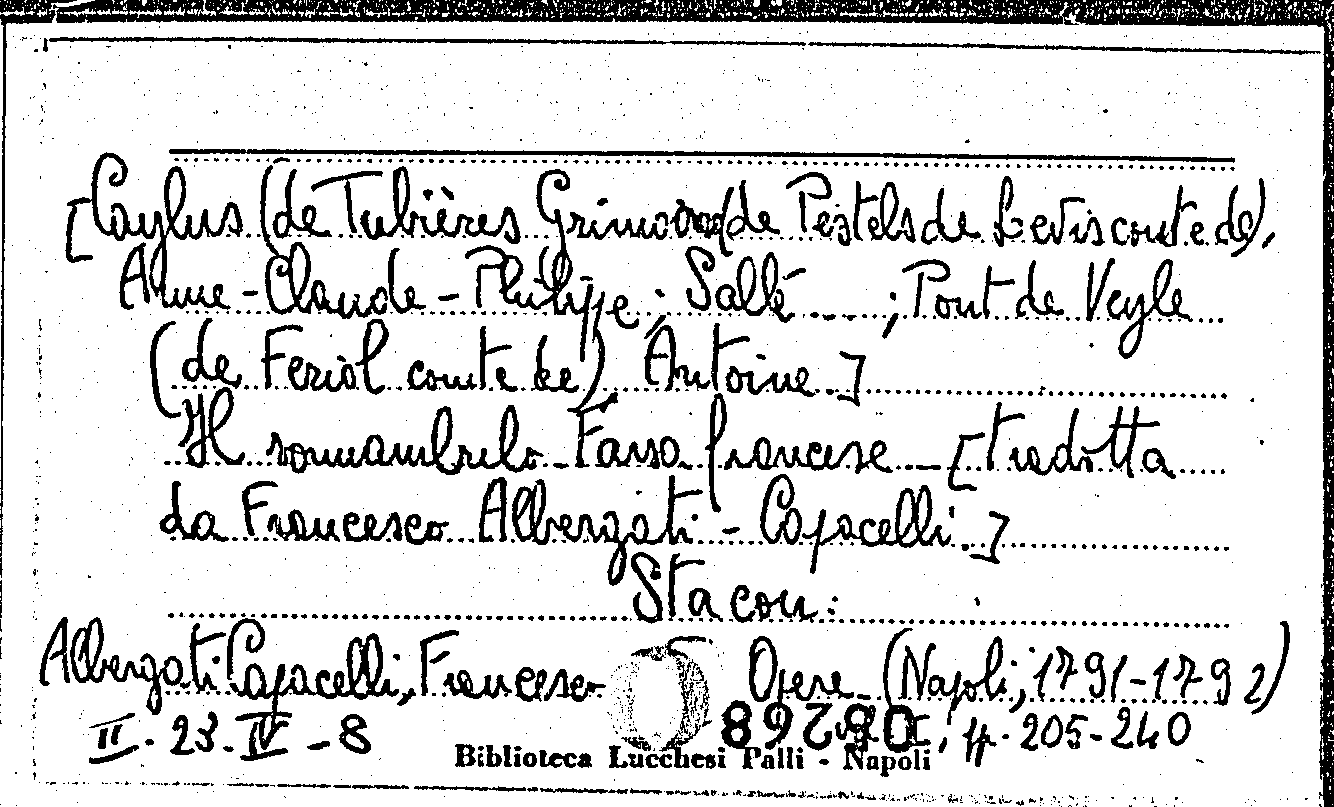 [Caylus (de Tubières Grimoard de Pestels de Levis comte de),
Anne-Claude-Philippe; Sallé ....; Pont de Veyle
(de Feriol comte de) Antoine]
Il sonnambulo. Farsa francese — [tradotta
da Francesco Albergati-Capacelli.]
Sta con:
Albergati Capacelli, Francesco Opere (Napoli, 1791-1792)
II. 23. IV - 8 , pp. 205-240
Biblioteca Lucchesi Palli - Napoli